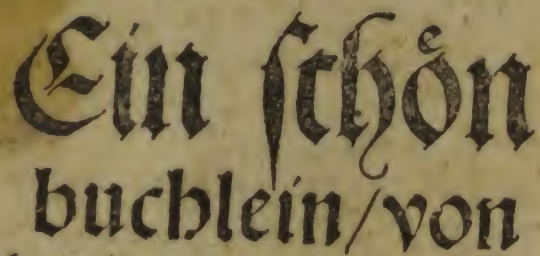 Ein ſchoͤn
buchlein/von